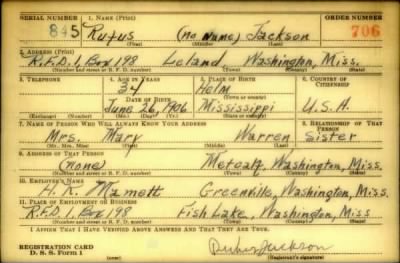 SERIAL NUMBER 1. NAME (Print) ORDER NUMBER
845 Rufus (No name) Jackson 706
(First) (Middle) (Last)
2. ADDRESS (Print)
R.F.D. 1, Box 198 Leland, Washington, Miss.
(Number and street or R. F. D. number) (Town) (County) (State)
3. TELEPHONE 4. AGE IN YEARS 5. PLACE OF BIRTH 6. COUNTRY OF CITIZENSHIP
34 Helm
DATE OF BIRTH (Town or county)
June 26, 1906 Mississippi U.S.A.
(Exchange) (Number) (Mo.) (Day) (Yr.) (State or country)
7. NAME OF PERSON WHO WILL ALWAYS KNOW YOUR ADDRESS 8. RELATIONSHIP OF THAT PERSON
Mrs. Mary Warren Sister
(Mr., Mrs., Miss) (First) (Middle) (Last)
9. ADDRESS OF THAT PERSON
(None) Metcalf, Washington, Miss.
(Number and street or R. F. D. number) (Town) (County) (State)
10. EMPLOYER'S NAME
H. K. Greenville, Washington, Miss.
11. PLACE OF EMPLOYMENT OR BUSINESS
R.F.D. 1, Box 198 Fish Lake, Washington, Miss.
(Number and street or R. F. D. number) (Town) (County) (State)
I AFFIRM THAT I HAVE VERIFIED ABOVE ANSWERS AND THAT THEY ARE TRUE.
REGISTRATION CARD
D. S. S. Form 1 Rufus Jackson
(Registrant's signature)